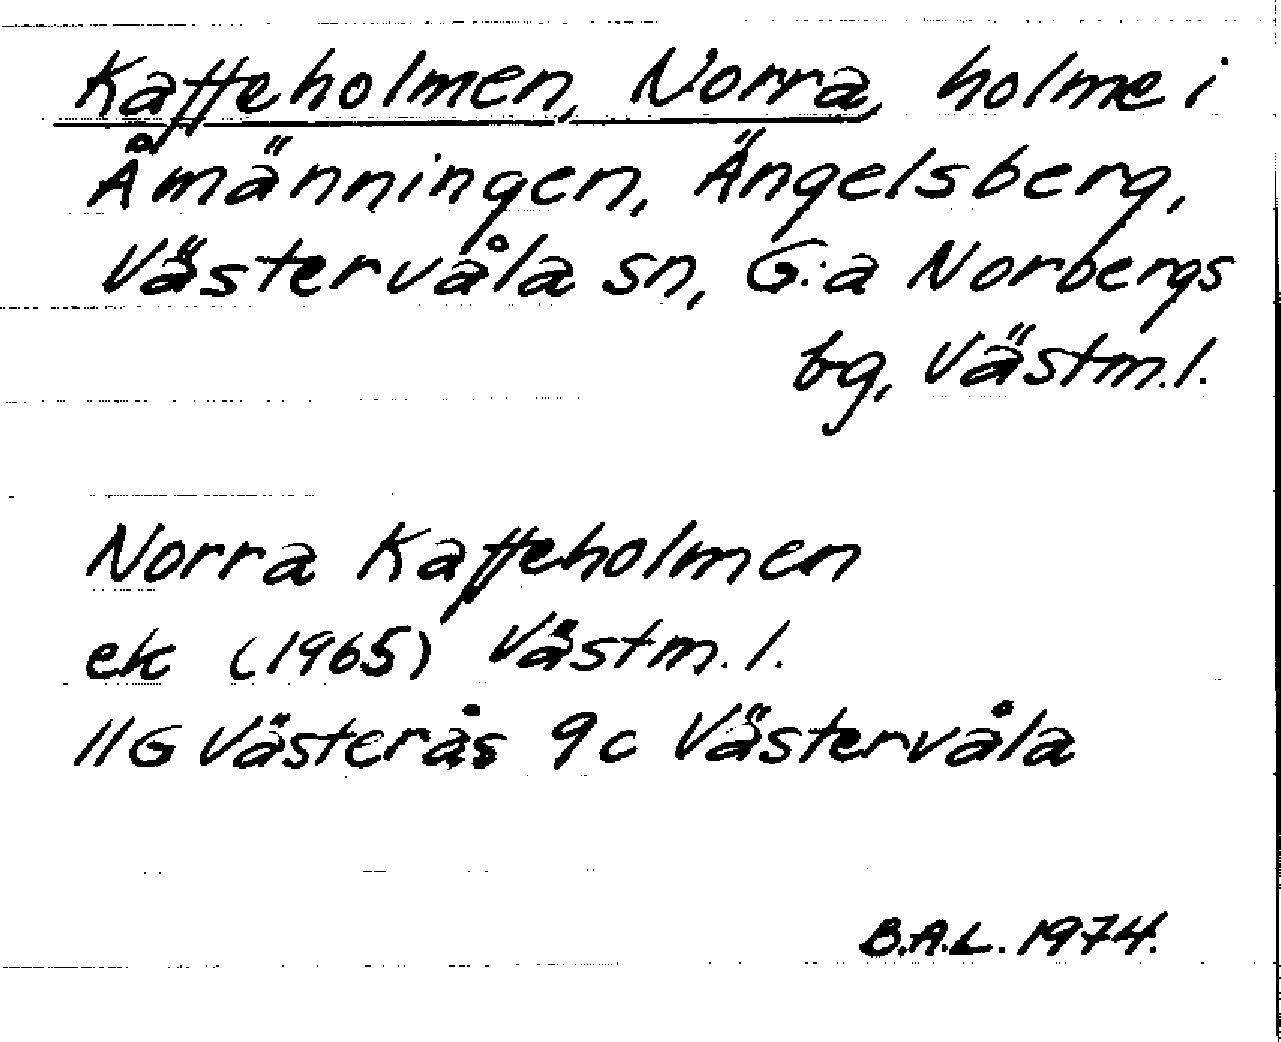 Kaffeholmen, Norra, holme i
Åmänningen, Ängelsberg,
Västervåla sn, G:a Norbergs
bg, Västm.l.
Norra Kaffeholmen
ek (1965) Västm.l.
11G Västerås 9c Västervåla
B.A.L. 1974.